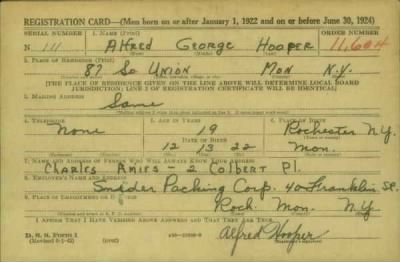 REGISTRATION CARD—(Men born on or after January 1, 1922 and on or before June 30, 1924)
SERIAL NUMBER 1. NAME (Print) ORDER NUMBER
N 111 Alfred George Hooper 11,604
2. PLACE OF RESIDENCE (Print)
87 So Union Mon N.Y.
[THE PLACE OF RESIDENCE GIVEN ON THE LINE ABOVE WILL DETERMINE LOCAL BOARD
JURISDICTION; LINE 2 OF REGISTRATION CERTIFICATE WILL BE IDENTICAL]
3. MAILING ADDRESS
Same
4. TELEPHONE 5. AGE IN YEARS 6. PLACE OF BIRTH
None 19 Rochester N.Y.
DATE OF BIRTH
12 13 22 Mon.
7. NAME AND ADDRESS OF PERSON WHO WILL ALWAYS KNOW YOUR ADDRESS
Charles Amies - 2 Colbert Pl.
8. EMPLOYER'S NAME AND ADDRESS
Snider Packing Corp. 40 Franklin St.
9. PLACE OF EMPLOYMENT OR BUSINESS
Roch. Mon. N.Y.
I AFFIRM THAT I HAVE VERIFIED ABOVE ANSWERS AND THAT THEY ARE TRUE.
D. S. S. Form 1
(over)
Alfred Hooper